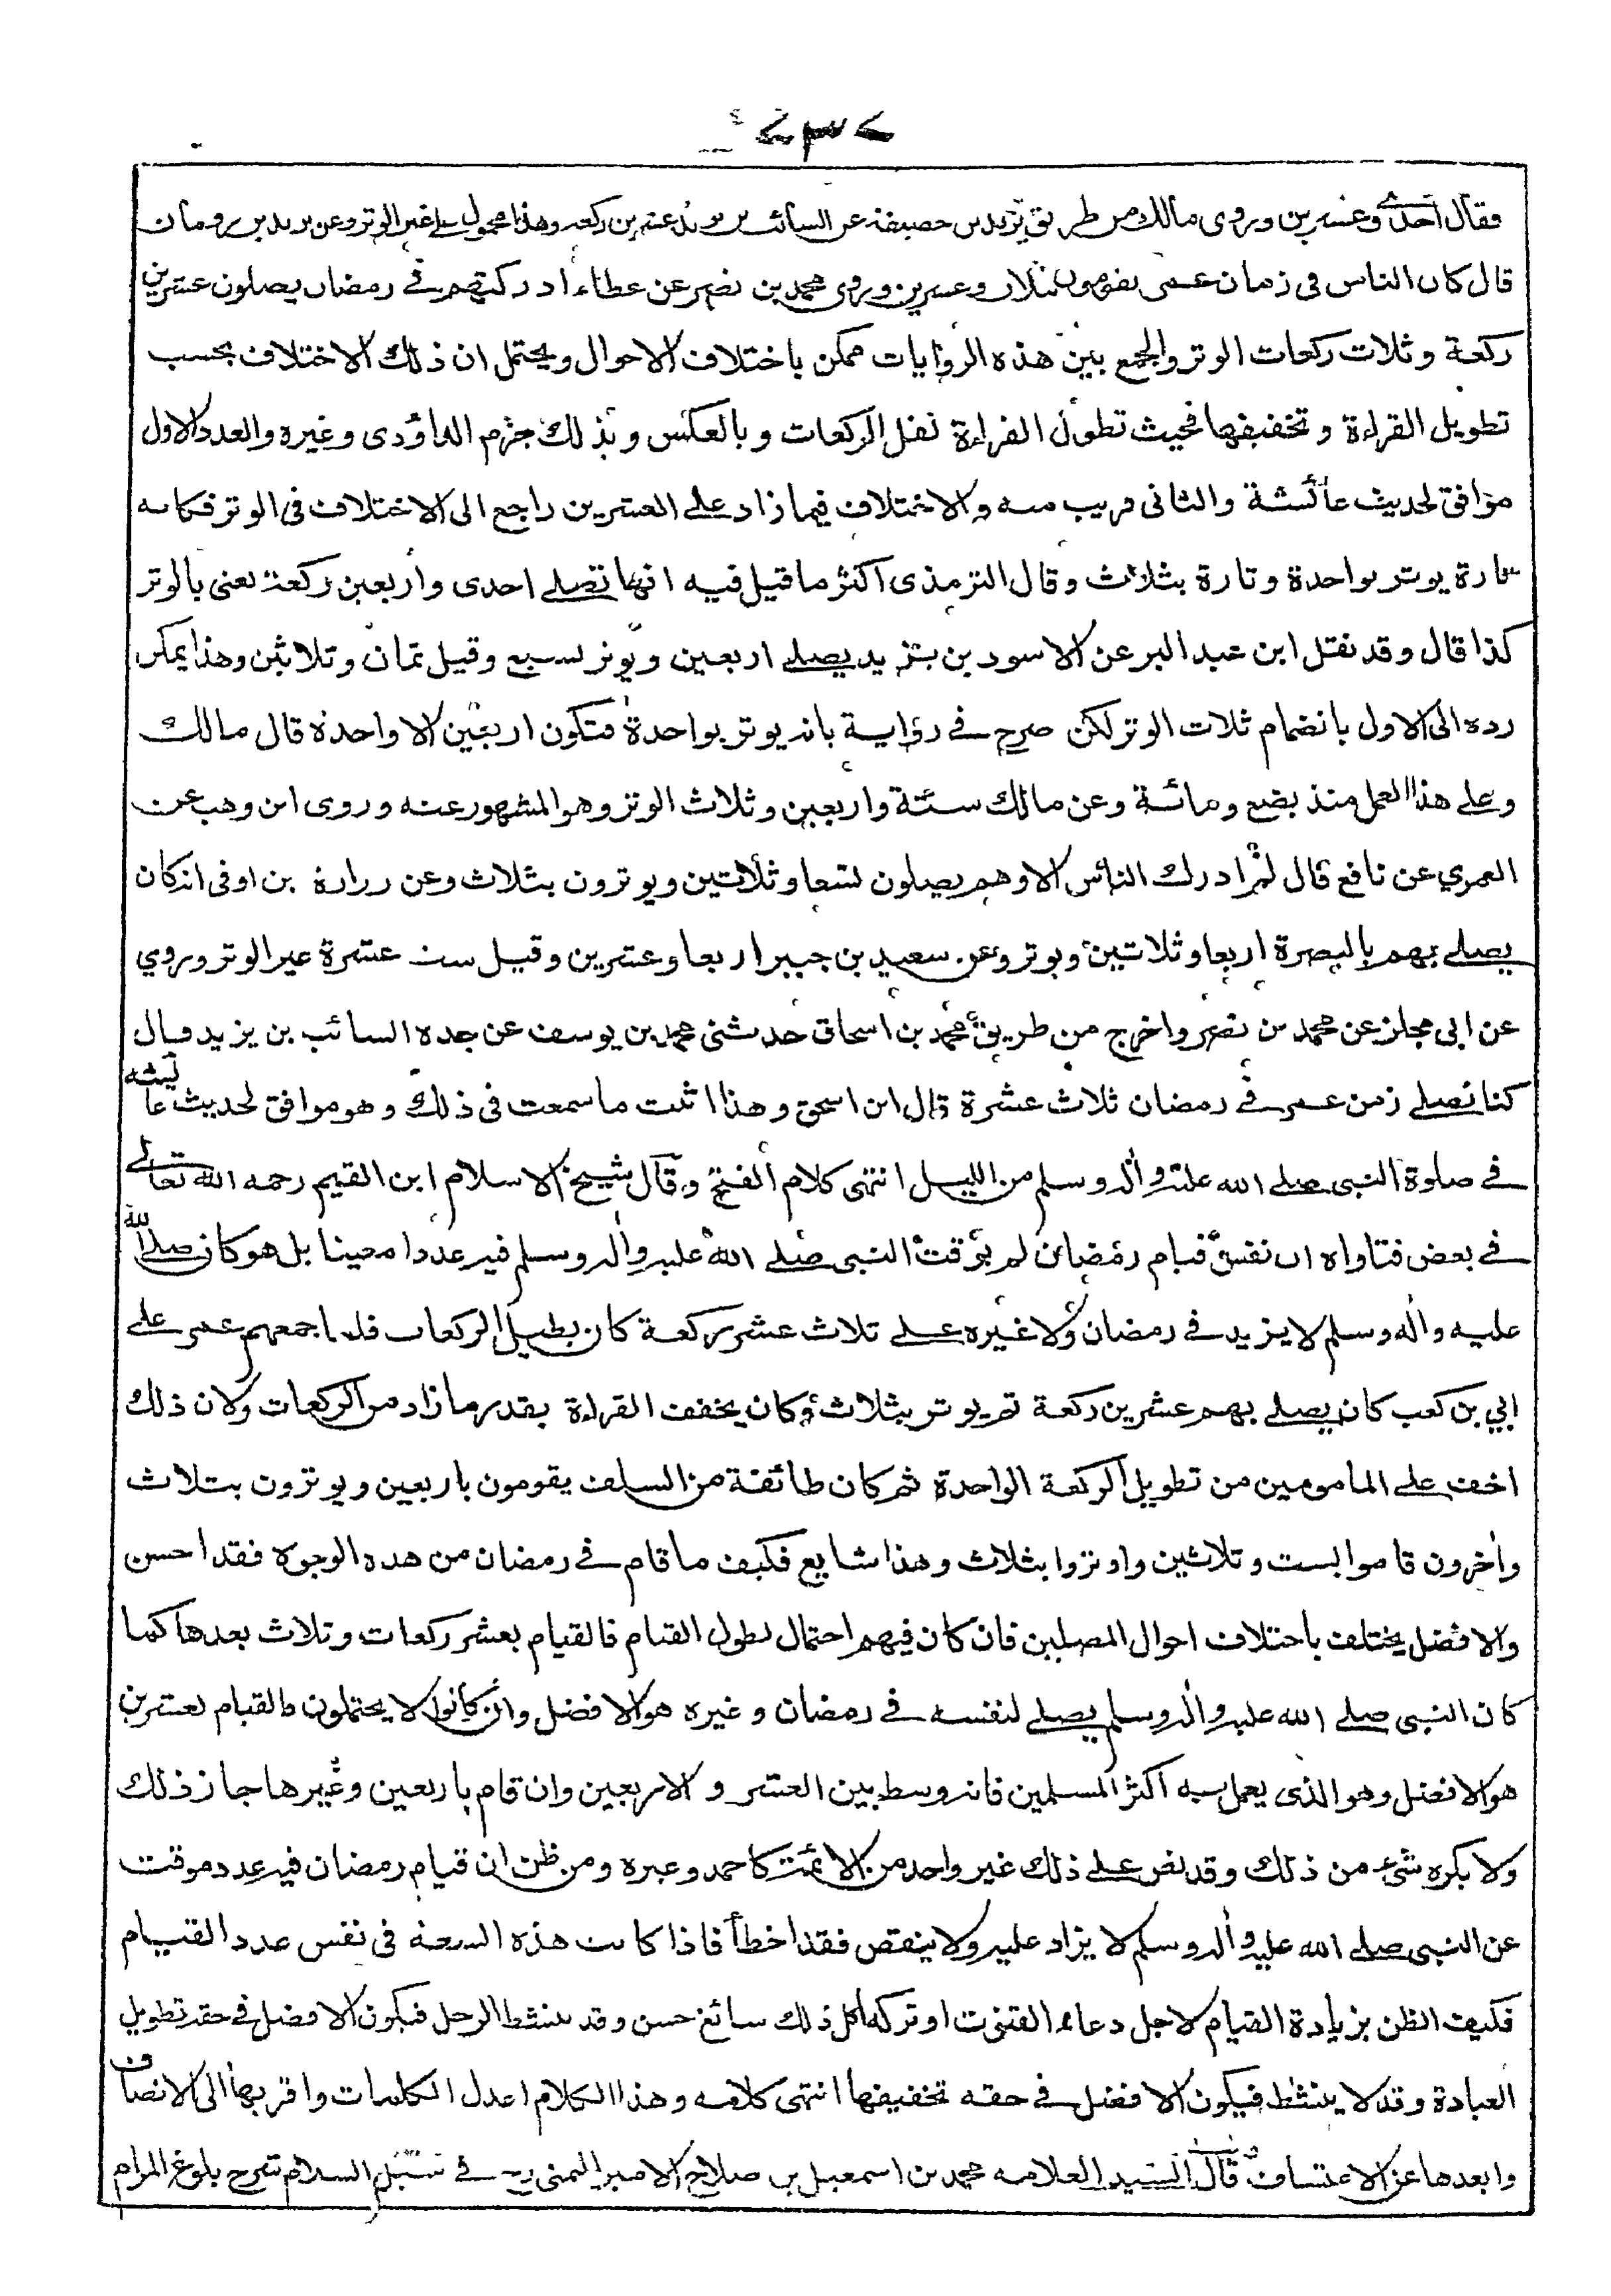 ٢٣٧
فقال احدى وعشرين وروى مالك من طريق يزيد بن خصيفة عن السائب بن يزيد عشرين ركعة وهذا محمول على غير الوتر وعن يزيد بن رومان
قال كان الناس فى زمان عمر يقومون بثلاث وعشرين وروى محمد بن نصر عن عطاء ادركتهم فى رمضان يصلون عشرين
ركعة وثلاث ركعات الوتر والجمع بين هذه الروايات ممكن باختلاف الاحوال ويحتمل ان ذلك الاختلاف بحسب
تطويل القراءة وتخفيفها فحيث تطول القراءة تقل الركعات وبالعكس وبذلك جزم الداؤدى وغيره والعدد الاول
موافق لحديث عائشة والثانى قريب منه والاختلاف فيما زاد على العشرين راجع الى الاختلاف فى الوتر فكانه
تارة يوتر بواحدة وتارة بثلاث وقال الترمذى اكثر ما قيل فيه انها تصلى احدى واربعين ركعة يعنى بالوتر
كذا قال وقد نقل ابن عبد البر عن الاسود بن يزيد يصلى اربعين ويوتر بسبع وقيل ثمان وثلاثين وهذا يمكن
رده الى الاول بانضمام ثلاث الوتر لكن صرح فى رؤاية بانه يوتر بواحدة فتكون اربعين الا واحدة قال مالك
وعلى هذا العمل منذ بضع ومائة وعن مالك ستة واربعين وثلاث الوتر وهو المشهور عنه وروى ابن وهب عن
العمري عن نافع قال لم ادرك الناس الا وهم يصلون تسعا وثلاثين ويوترون بثلاث وعن زرارة بن اوفى انه كان
يصلى بهم بالبصرة اربعا وثلاثين ويوتر وعن سعيد بن جبير اربعا وعشرين وقيل ست عشرة غير الوتر وروي
عن ابى مجلز عن محمد بن نصر واخرج من طريق محمد بن اسحاق حدثنى محمد بن يوسف عن جده السائب بن يزيد قال
كنا نصلى زمن عمر فى رمضان ثلاث عشرة قال ابن اسحق وهذا اثبت ما سمعت فى ذلك وهو موافق لحديث عائشه
فى صلوة النبى صلى الله عليه واله وسلم من الليل انتهى كلام الفتح وقال شيخ الاسلام ابن القيم رحمه الله تعالى
فى بعض فتاواه ان نفس قيام رمضان لم يوقت النبى صلى الله عليه واله وسلم فيه عددا معينا بل هو كان صلى الله
عليه واله وسلم لا يزيد فى رمضان ولا غيره على ثلاث عشر ركعة كان يطيل الركعات فلما جمعهم عمر على
ابي بن كعب كان يصلى بهم عشرين ركعة ثم يوتر بثلاث وكان يخفف القراءة بقدر ما زاد من الركعات ولان ذلك
اخف على المامومين من تطويل الركعة الواحدة ثم كان طائفة من السلف يقومون باربعين ويوترون بثلاث
واخرون قاموا بست وثلاثين واوتروا بثلاث وهذا شايع فكيف ما قام فى رمضان من هذه الوجوه فقد احسن
والافضل يختلف باختلاف احوال المصلين فان كان فيهم احتمال لطول القيام فالقيام بعشر ركعات وثلاث بعدها كما
كان النبى صلى الله عليه واله وسلم يصلى لنفسه فى رمضان وغيره هو الافضل وان كانوا لا يحتملون فالقيام بعشرين
هو الافضل وهو الذى يعمل به اكثر المسلمين فانه وسط بين العشر والاربعين وان قام باربعين وغيرها جاز ذلك
ولا يكره شئ من ذلك وقد نص على ذلك غير واحد من الائمة كاحمد وغيره ومن ظن ان قيام رمضان فيه عدد موقت
عن النبى صلى الله عليه واله وسلم لا يزاد عليه ولا ينقص فقد اخطأ فاذا كانت هذه السعة فى نفس عدد القيام
فكيف الظن بزيادة القيام لاجل دعاء القنوت او تركه كل ذلك سائغ حسن وقد ينشط الرجل فيكون الافضل فى حقه تطويل
العبادة وقد لا ينشط فيكون الافضل فى حقه تخفيفها انتهى كلامه وهذا الكلام اعدل الكلمات واقربها الى الانصاف
وابعدها عن الاعتساف وقال السيد العلامه محمد بن اسمعيل بن صلاح الامير اليمنى رح فى سبل السلام شرح بلوغ المرام